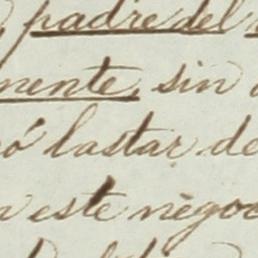 padre del
mente, sin
ó lastar de
este negoc